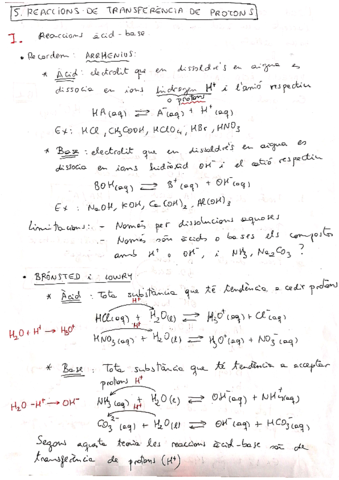 5. REACCIONS DE TRANSFERÈNCIA DE PROTONS
I. Reaccions àcid-base
• Recordem: ARRHENIUS:
* Àcid: electròlit que en dissoldre's en aigua es
dissocia en ions hidrogen H⁺ i l'anió respectiu
o protons
HA(aq) ⇌ A⁻(aq) + H⁺(aq)
Ex: HCl, CH₃COOH, HClO₄, HBr, HNO₃
* Base: electròlit que en dissoldre's en aigua es
dissocia en ions hidròxid OH⁻ i el catió respectiu
BOH(aq) ⇌ B⁺(aq) + OH⁻(aq)
Ex: NaOH, KOH, Ca(OH)₂, Al(OH)₃
Limitacions: - Només per dissolucions aquoses
- Només són àcids o bases els compostos
amb H⁺ o OH⁻, i NH₃, Na₂CO₃ ?
• BRÖNSTED i LOWRY
* Àcid: Tota substància que té tendència a cedir protons
H⁺
HCl(aq) + H₂O(l) ⇌ H₃O⁺(aq) + Cl⁻(aq)
H₂O + H⁺ → H₃O⁺
H⁺
HNO₃(aq) + H₂O(l) ⇌ H₃O⁺(aq) + NO₃⁻(aq)
* Base: Tota substància que té tendència a acceptar
protons H⁺
H₂O - H⁺ → OH⁻
NH₃(aq) + H₂O(l) ⇌ OH⁻(aq) + NH₄⁺(aq)
H⁺
CO₃²⁻(aq) + H₂O(l) ⇌ OH⁻(aq) + HCO₃⁻(aq)
Segons aquesta teoria les reaccions àcid-base són de
transferència de protons (H⁺)